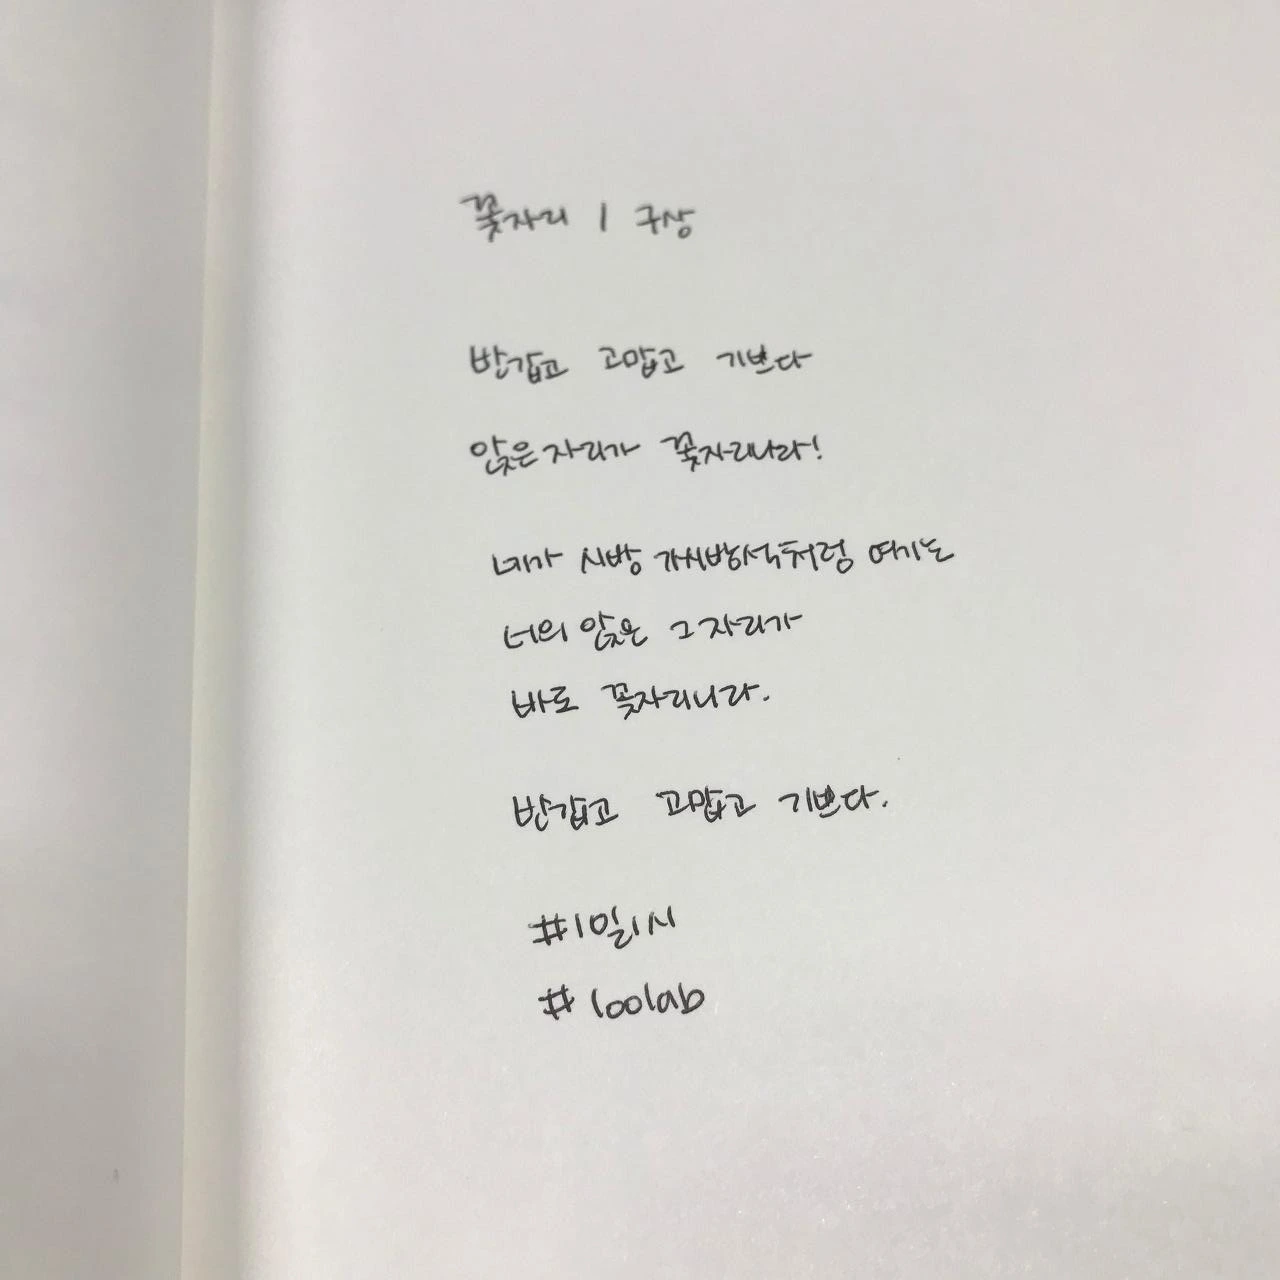 꽃자리 | 구상
반갑고 고맙고 기쁘다
앉은 자리가 꽃자리니라!
네가 시방 가시방석처럼 여기는
너의 앉은 그 자리가
바로 꽃자리니라.
반갑고 고맙고 기쁘다.
#1일1시
#100lab